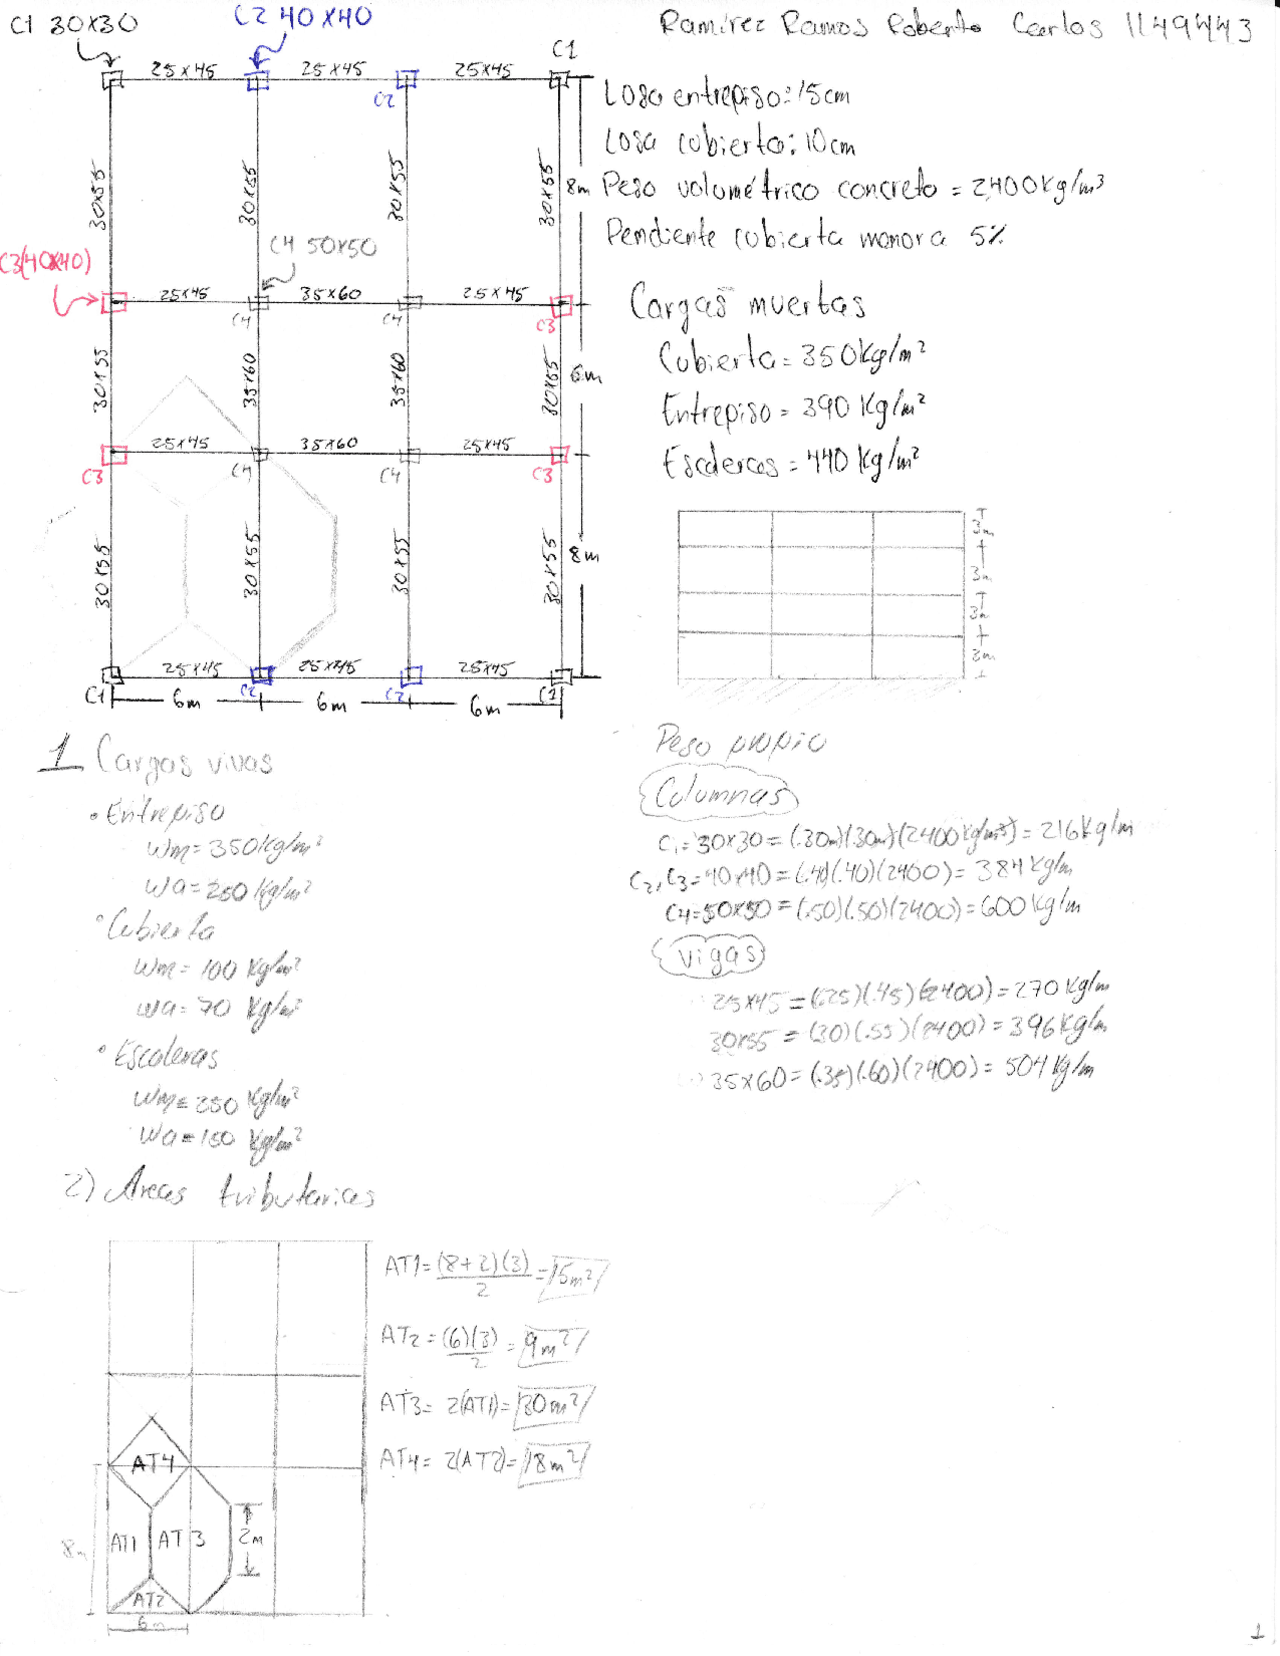 C1 30x30
C2 40x40
Ramírez Ramos Roberto Carlos 1149443
C1
25x45
25x45
25x45
C2
Losa entrepiso: 15cm
Losa cubierta: 10cm
Peso volumétrico concreto = 2,400Kg/m³
Pendiente cubierta menor a 5%
30x55
30x55
30x55
30x55
8m
C4 50x50
C3(40x40)
25x45
35x60
25x45
C4
C4
C3
Cargas muertas
Cubierta = 350Kg/m²
Entrepiso = 390 Kg/m²
Escaleras = 440 Kg/m²
30x55
35x60
35x60
30x55
6m
25x45
35x60
25x45
C3
C4
C4
C3
30x55
30x55
30x55
30x55
8m
3m
3m
3m
2m
25x45
25x45
25x45
C1
C2
C2
C1
6m
6m
6m
1 Cargas vivas
• Entrepiso
Wm = 350Kg/m²
Wa = 250 Kg/m²
• Cubierta
Wm = 100 Kg/m²
Wa = 70 Kg/m²
• Escaleras
Wm = 250 Kg/m²
Wa = 150 Kg/m²
Peso propio
Columnas
C1 = 30x30 = (.30m)(.30m)(2400Kg/m³) = 216Kg/m
C2, C3 = 40x40 = (.40)(.40)(2400) = 384 Kg/m
C4 = 50x50 = (.50)(.50)(2400) = 600 Kg/m
Vigas
25x45 = (.25)(.45)(2400) = 270 Kg/m
30x55 = (.30)(.55)(2400) = 396 Kg/m
35x60 = (.35)(.60)(2400) = 504 Kg/m
2) Areas tributarias
AT1 = (8+2)(3)/2 = 15m²
AT2 = (6)(3)/2 = 9m²
AT3 = 2(AT1) = 30m²
AT4 = 2(AT2) = 18m²
AT4
AT1
AT3
2m
8m
AT2
6m
1